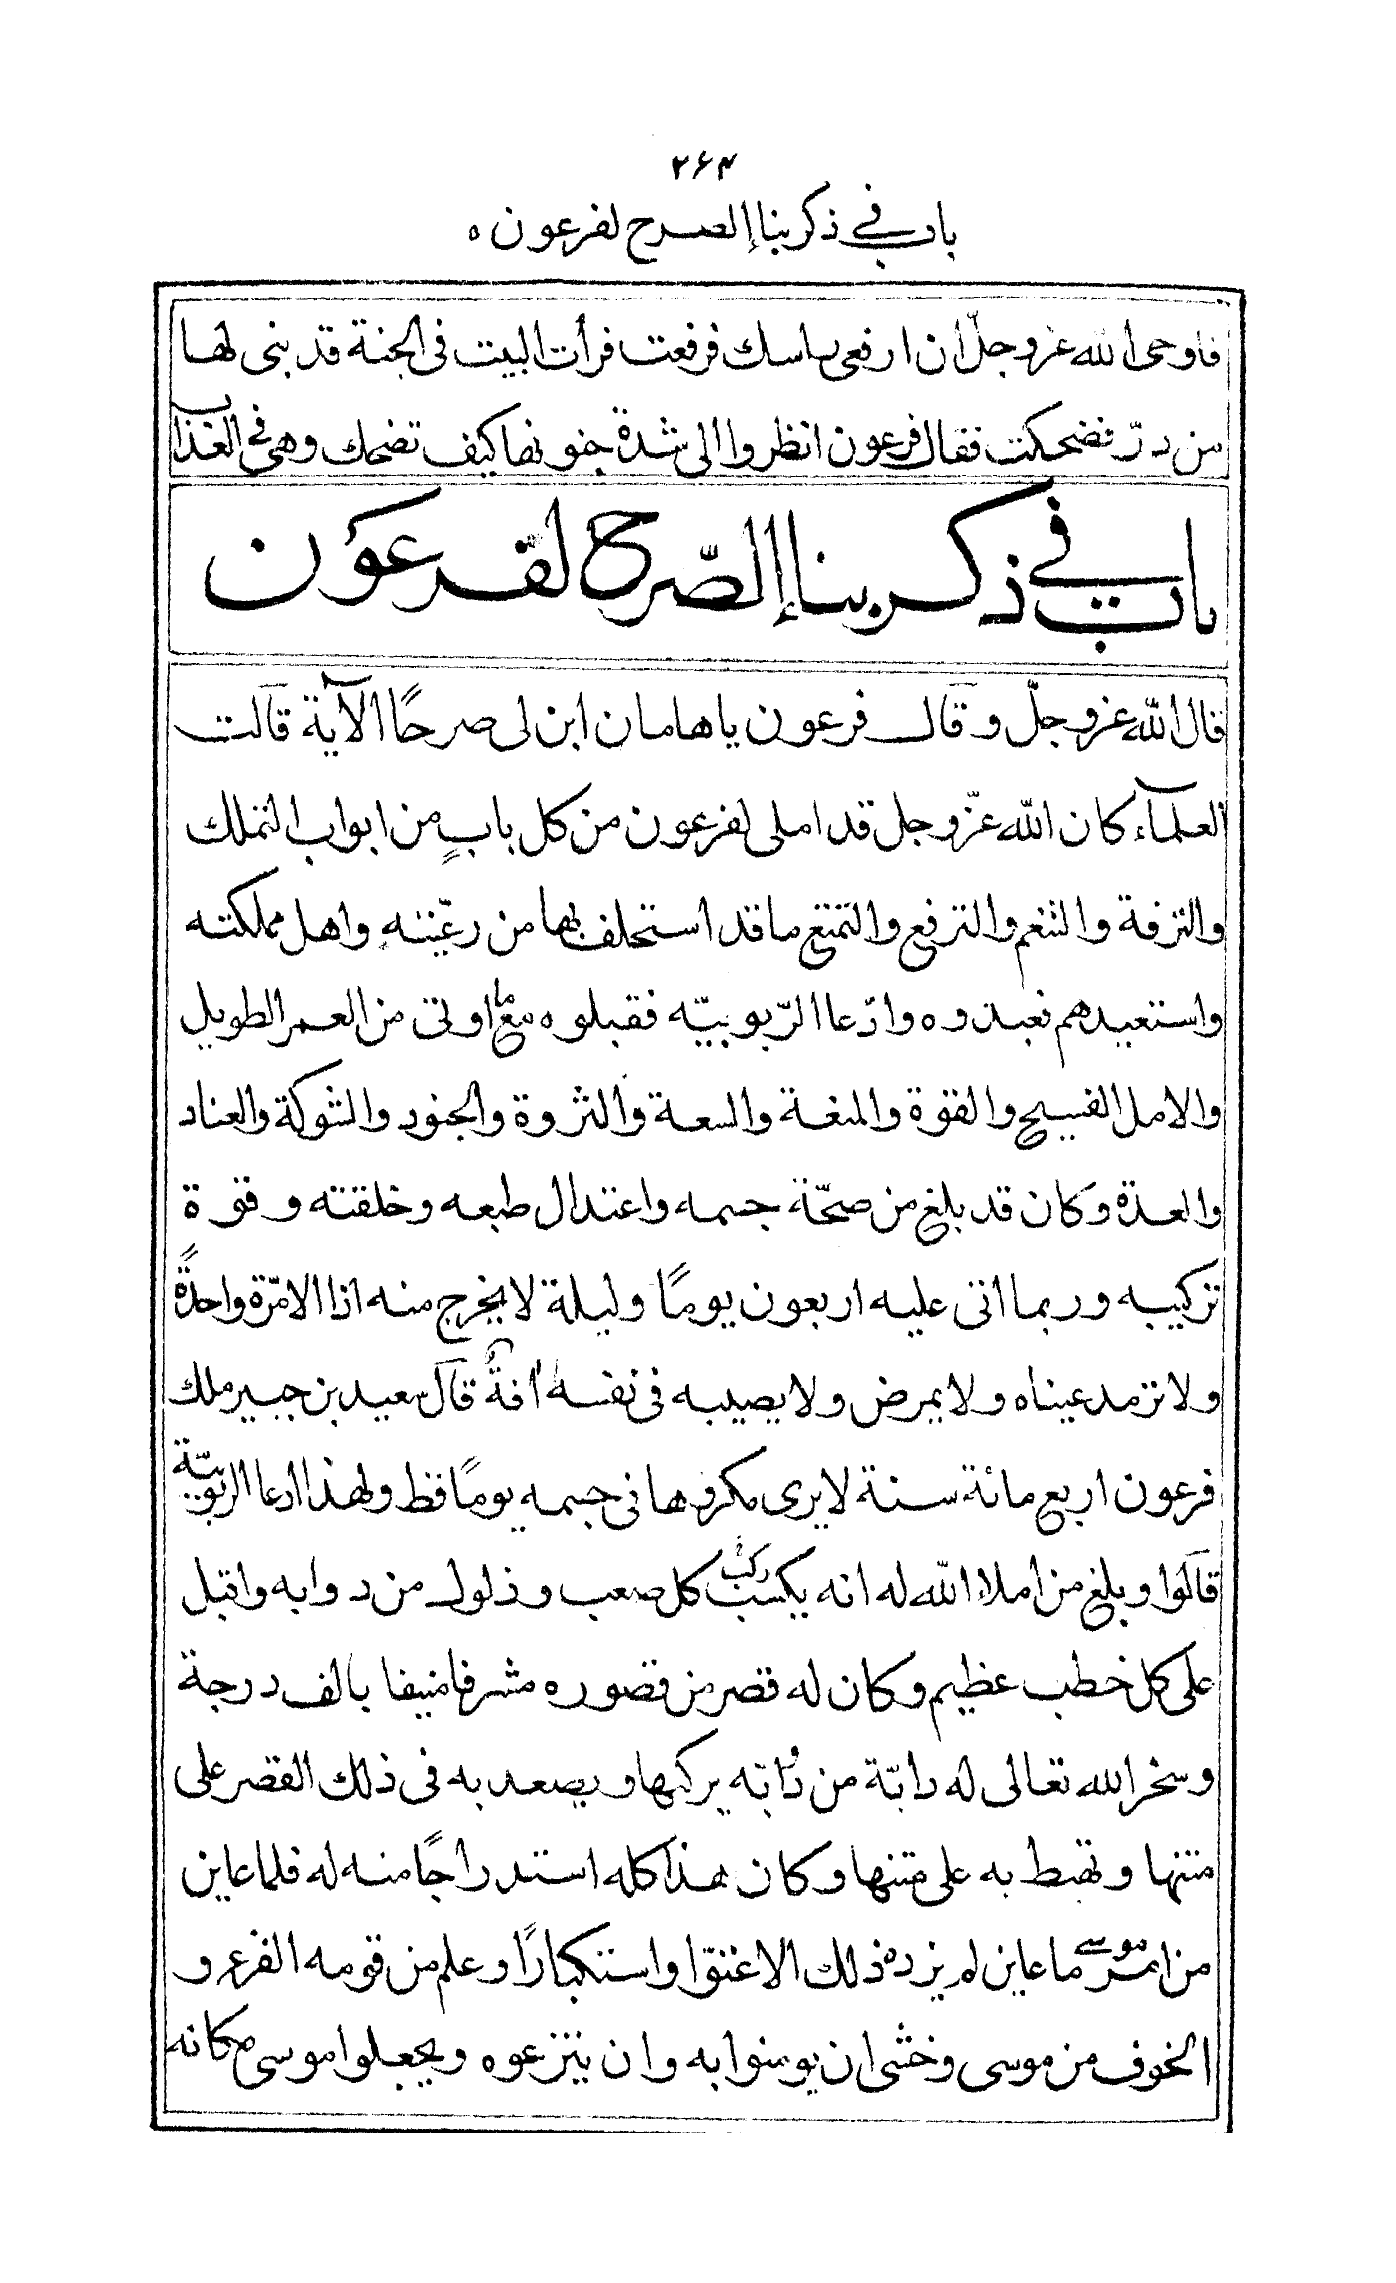 ٢۶۴
باب في ذكر بنا إلصرح لفرعون ه
فاوحى الله عز وجلّ ان ارفعى راسك فرفعت فرأت البيت فى الجنة قد بنى لها
من درّ فضحكت فقال فرعون انظروا الى شدة جنونها كيف تضحك وهى فى العذاب
باب في ذكر بنا إلصّرح لفرعون
قال الله عز وجلّ وقال فرعون ياهامان ابن لى صرحًا الآية قالت
العلمآء كان الله عزّ وجل قد املى لفرعون من كل بابٍ من ابواب التملك
والترفة والتنعم والترفع والتمتع ما قد استخلف بها من رعيّته واهل مملكته
واستعبدهم فعبدوه وادّعا الرّبوبيّه فقبلوه مع ما اوتى من العمر الطويل
والامل الفسيح والقوة والمنعة والسعة والثروة والجنود والشوكة والعناد
والعدة وكان قد بلغ من صحّة جسمه واعتدال طبعه وخلقته وقوة
تركيبه وربما اتى عليه اربعون يومًا وليلة لا يخرج منه اذا الا مرّة واحدةً
ولا ترمد عيناه ولا يمرض ولا يصيبه فى نفسه أفةٌ قال سعيد بن جبير ملك
فرعون اربع مائة سنة لا يرى مكروها فى جسمه يومًا قط ولهذا ادعا الربوبيّة
قالوا وبلغ من املاء الله له انه يكسب ركب كل صعب وذلول من دوابه واقبل
على كل خطب عظيم وكان له قصر من قصوره مشرفا منيفا بالف درجة
وسخر الله تعالى له دابّة من دوابّه يركبها ويصعد به فى ذلك القصر على
متنها وتهبط به على متنها وكان هذا كله استدراجًا منه له فلما عاين
من امر موسى ما عاين لم يزده ذلك الا عتوّا واستكبارًا وعلم من قومه الفزع و
الخوف من موسى وخشى ان يومنوا به وان ينتزعوه ويجعلوا موسى مكانه